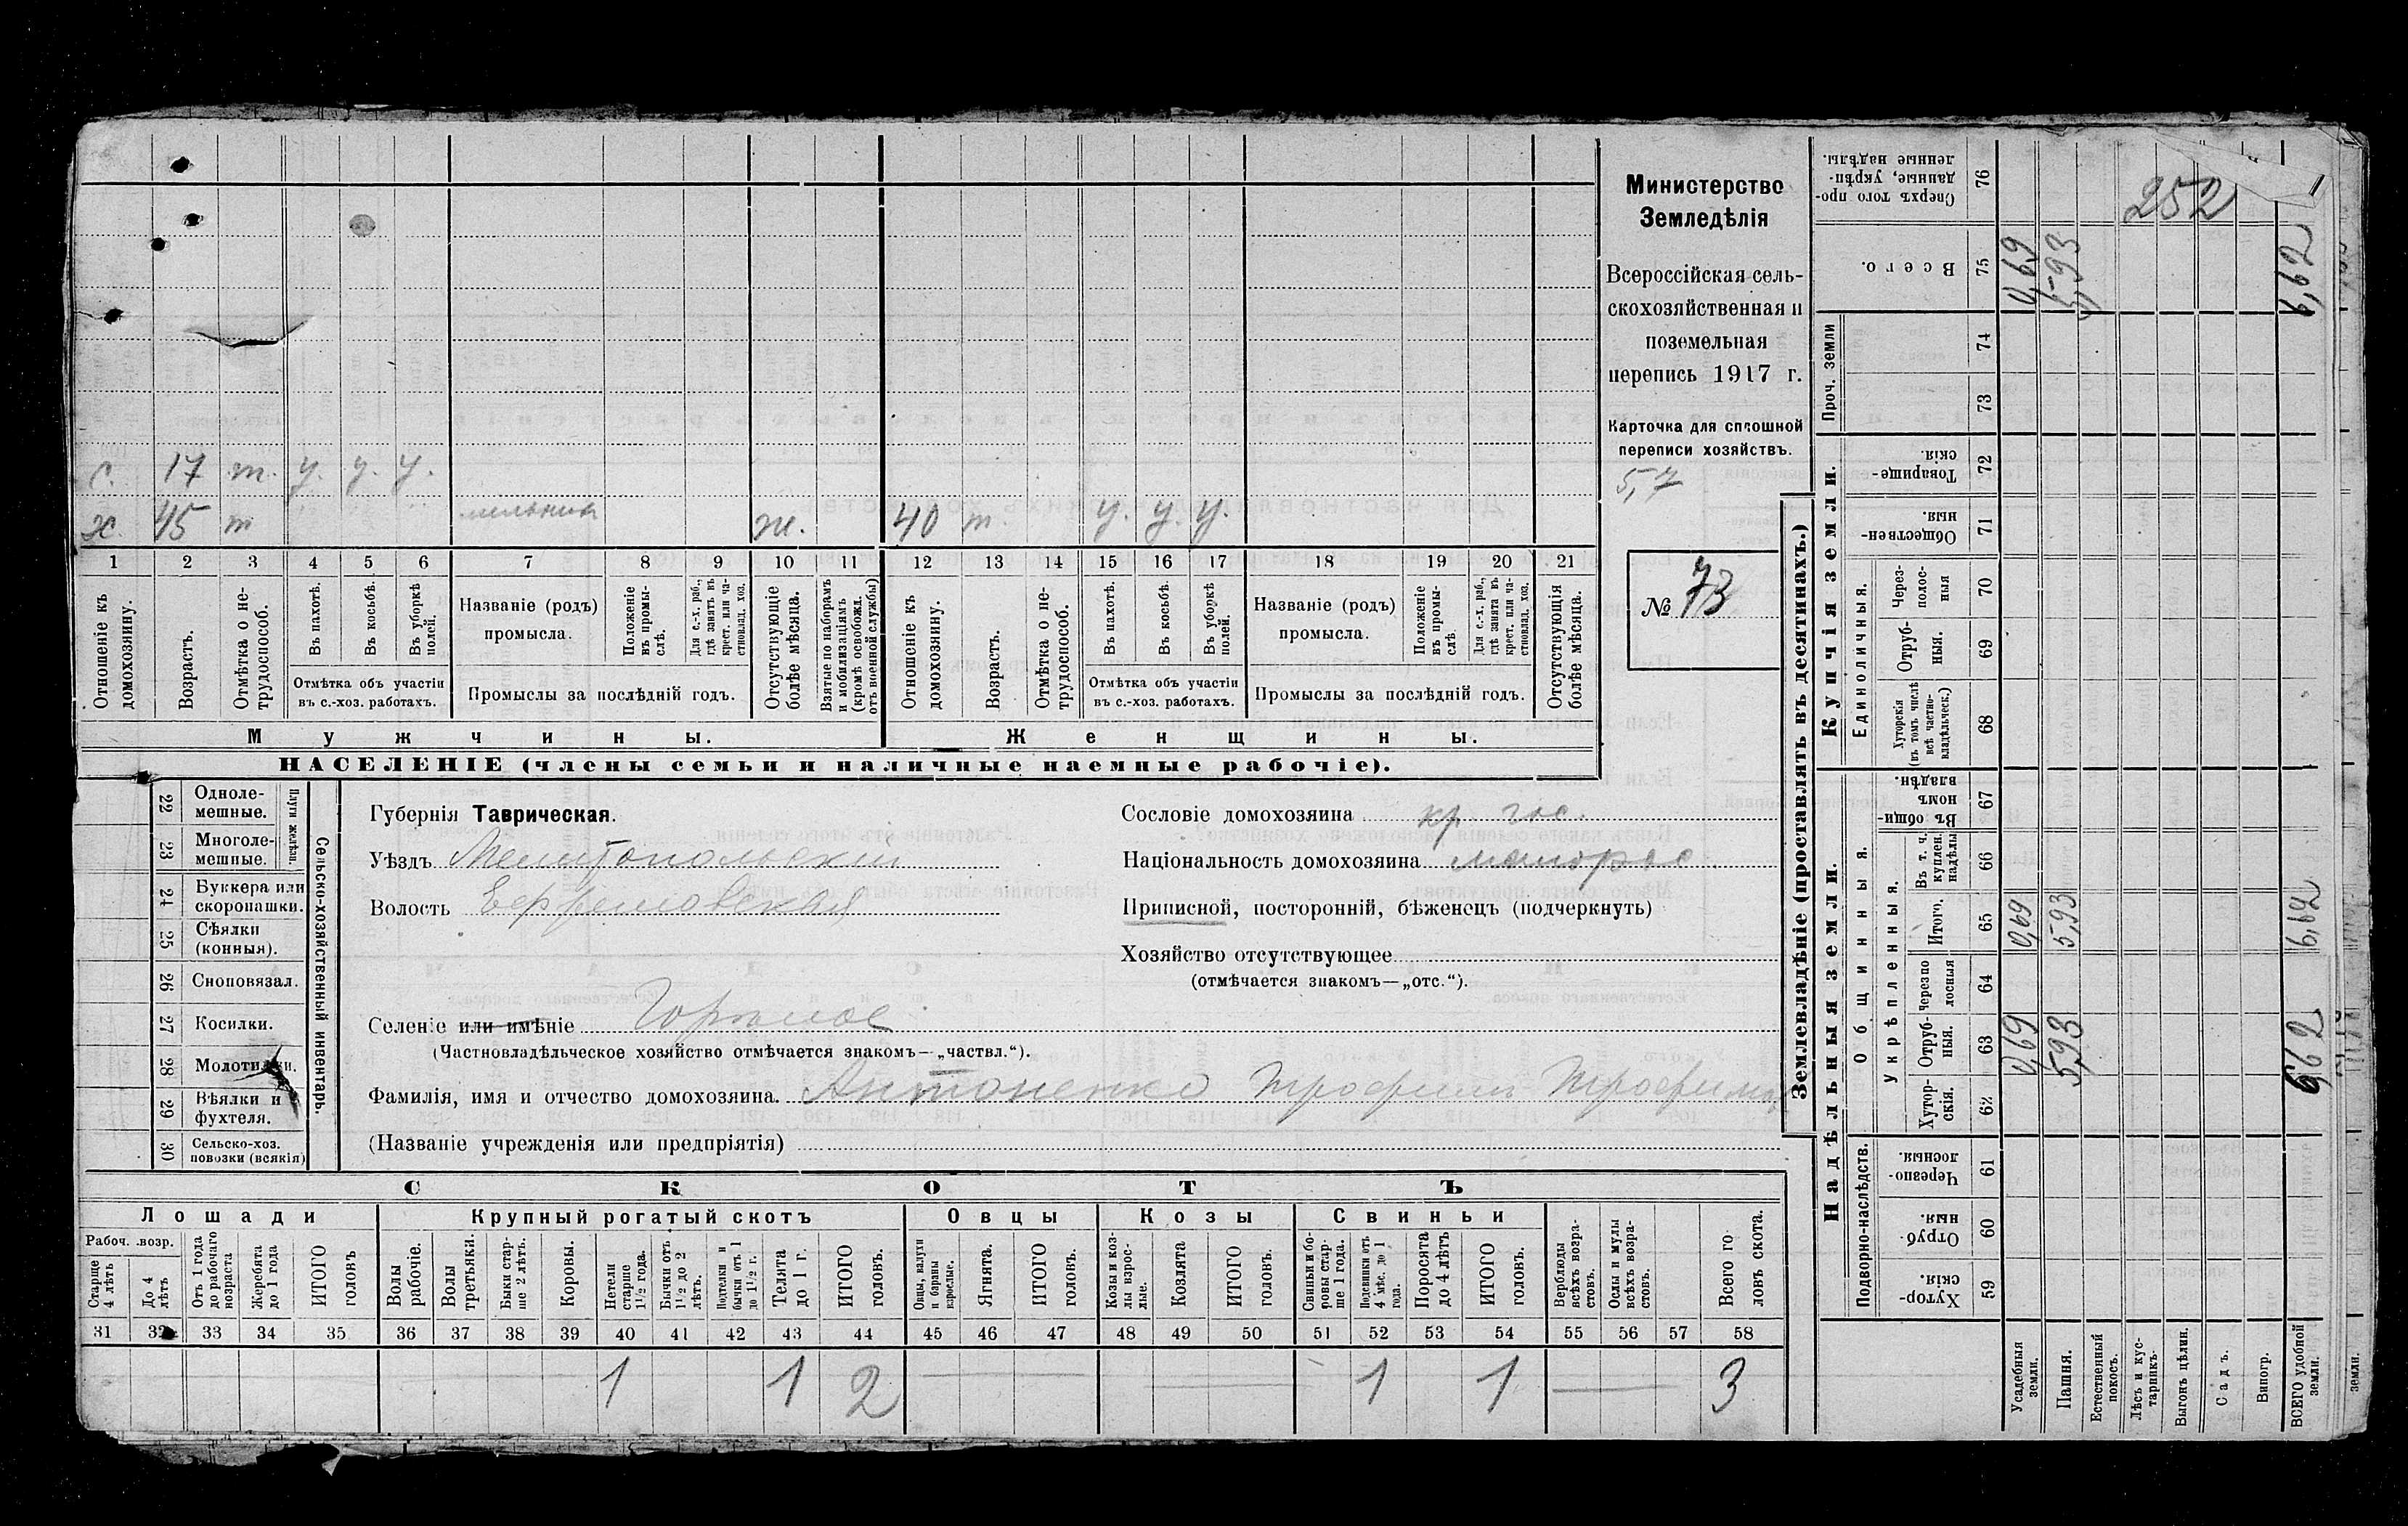 с. 17 т. у. у. у.
х. 45 т мельник ж. 40 т. у. у. у.
1 2 3 4 5 6 7 8 9 10 11 12 13 14 15 16 17 18 19 20 21
Отношеніе къ домохозяину.
Возрастъ.
Отмѣтка о нетрудоспособ.
Въ пахотѣ.
Въ косьбѣ.
Въ уборкѣ полей.
Отмѣтка объ участіи
въ с.-хоз. работахъ.
Названіе (родъ)
промысла.
Положеніе въ промыслѣ.
Для с.-х. раб., гдѣ занятъ въ крест. или частновлад. хоз.
Промыслы за послѣдній годъ.
Отсутствующіе болѣе мѣсяца.
Взятые по наборамъ и мобилизаціямъ (кромѣ освобожд. отъ военной службы)
Отношеніе къ домохозяину.
Возрастъ.
Отмѣтка о нетрудоспособ.
Въ пахотѣ.
Въ косьбѣ.
Въ уборкѣ полей.
Отмѣтка объ участіи
въ с.-хоз. работахъ.
Названіе (родъ)
промысла.
Положеніе въ промыслѣ.
Для с.-х. раб., гдѣ занята въ крест. или частновлад. хоз.
Промыслы за послѣдній годъ.
Отсутствующія болѣе мѣсяца.
Мужчины. Женщины.
НАСЕЛЕНІЕ (члены семьи и наличные наемные рабочіе).
Министерство
Земледѣлія
Всероссійская сель-
скохозяйственная и
поземельная
перепись 1917 г.
Карточка для сплошной
переписи хозяйствъ.
5,7
№ 73
22 Однолемешные.
23 Многолемешные.
Плуги желѣзн.
24 Буккера или скоропашки.
25 Сѣялки (конныя).
26 Сноповязал.
27 Косилки.
28 Молотилки.
29 Вѣялки и фухтеля.
30 Сельско-хоз. повозки (всякія)
Сельско-хозяйственный инвентарь.
Губернія Таврическая.
Уѣздъ Мелитопольскій
Волость Ефремовская
Сословіе домохозяина кр. гос.
Національность домохозяина малорос.
Приписной, посторонній, бѣженецъ (подчеркнуть)
Хозяйство отсутствующее
(отмѣчается знакомъ—„отс.“).
Селеніе или имѣніе Горькое
(Частновладѣльческое хозяйство отмѣчается знакомъ—„частвл.“).
Фамилія, имя и отчество домохозяина. Антоненко Трофим Трофимов
(Названіе учрежденія или предпріятія)
СКОТЪ
Лошади Крупный рогатый скотъ Овцы Козы Свиньи
Рабоч. возр.
Старше 4 лѣтъ
До 4 лѣтъ
Отъ 1 года до рабочаго возраста
Жеребята до 1 года
ИТОГО головъ
Волы рабочіе.
Волы третьяки.
Быки старше 2 лѣтъ.
Коровы.
Нетели старше 1½ года.
Бычки отъ 1½ до 2 лѣтъ.
Подтелки и бычки отъ 1 до 1½ г.
Телята до 1 г.
ИТОГО головъ.
Овцы, валухи и бараны взрослые.
Ягнята.
ИТОГО головъ.
Козы и козлы взрослые.
Козлята
ИТОГО головъ.
Свиньи и боровы старше 1 года.
Подсвинки отъ 4 мѣс. до 1 года.
Поросята до 4 лѣтъ
ИТОГО головъ.
Верблюды всѣхъ возрастовъ.
Ослы и мулы всѣхъ возрастовъ.
Всего головъ скота.
31 32 33 34 35 36 37 38 39 40 41 42 43 44 45 46 47 48 49 50 51 52 53 54 55 56 57 58
1 1 2 — — 1 1 — 3
Землевладѣніе (проставлять въ десятинахъ.)
Купчія земли.
Надѣльныя земли.
Проч. земли
Единоличныя.
Общинныя.
Укрѣпленныя.
Подворно-наслѣдств.
Сверхъ того проданные, укрѣпленные надѣлы. 76 252
Всего. 75 0,69 5,93 6,62
74
73
Товарищескія. 72
Общественныя. 71
Черезполосныя 70
Отрубныя. 69
Хуторскія (въ томъ числѣ всѣ частновладѣльческ.) 68
Въ общинномъ владѣн. 67
Въ т. ч. куплен. надѣлы 66
Итого. 65 0,69 5,93 6,62
Черезполосныя 64
Отрубныя. 63 0,69 5,93 6,62
Хуторскія. 62
Черезполосныя. 61
Отрубныя. 60
Хуторскія. 59
Усадебныя земли.
Пашня.
Естественный покосъ.
Лѣсъ и кустарникъ.
Выгонъ цѣлин.
Садъ.
Виногр.
ВСЕГО удобной земли.
земли.